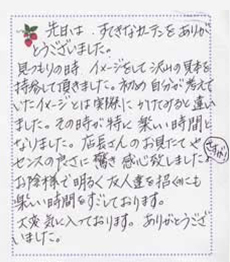 先日は、すてきなカーテンをありが
とうございました。
見つもりの時、イメージをして沢山の見本を
持参して頂きました。初め自分が考えて
いたイメージとは実際にかけてみると違い
ました。その時が特に楽しい時間と
なりました。店長さんのお見たてや
センスの良さに驚き感心致しました。
さすが!
お陰様で明るく友人達を招くにも
楽しい時間をすごしております。
大変気に入っております。ありがとうござ
いました。